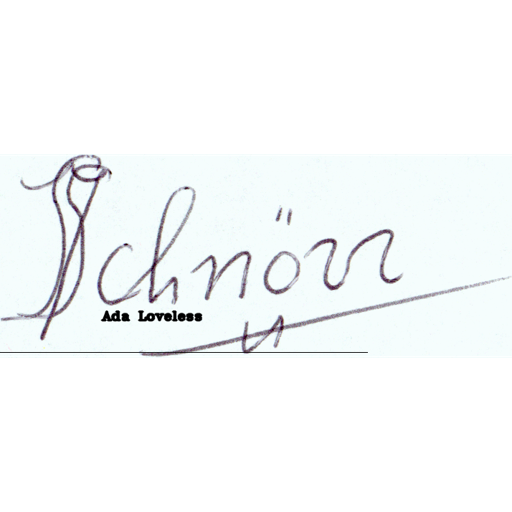 Schnörr
Ada Loveless